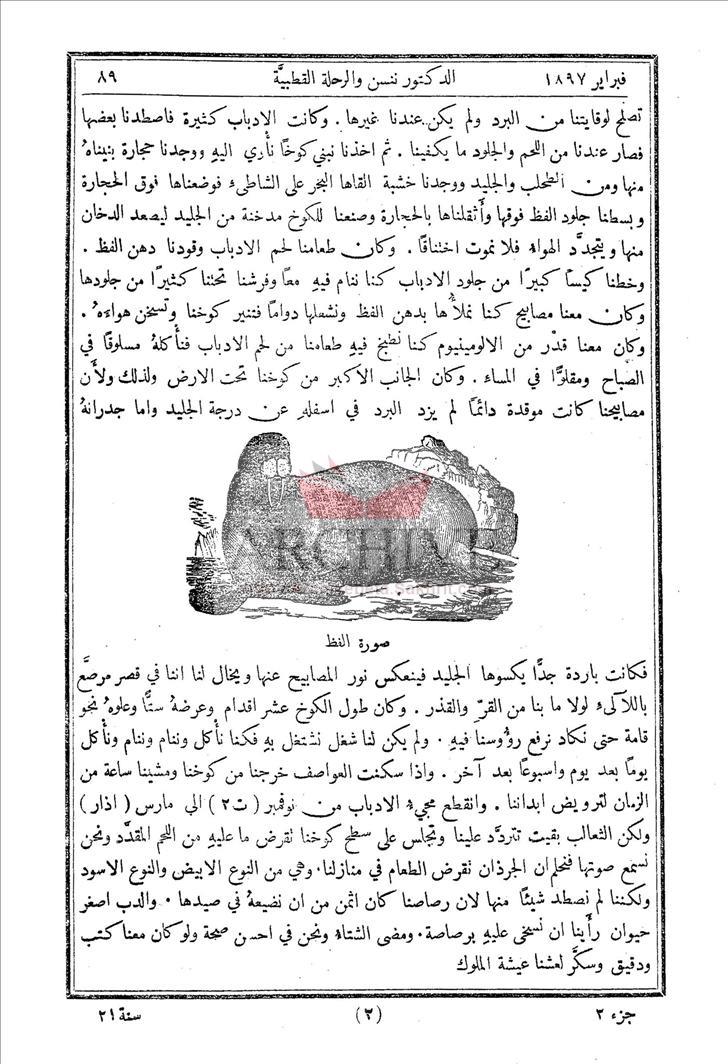 فبراير ١٨٩٧ الدكتور ننسن والرحلة القطبيَّة ٨٩
تصلح لوقايتنا من البرد ولم يكن عندنا غيرها . وكانت الادباب كثيرة فاصطدنا بعضها
فصار عندنا من اللحم والجلود ما يكفينا . ثم اخذنا نبني كوخًا نأوي اليهِ ووجدنا حجارة بنيناهُ
منها ومن الطحلب والجليد ووجدنا خشبة القاها البحر على الشاطىء فوضعناها فوق الحجارة
وبسطنا جلود الفظ فوقها وأثقلناها بالحجارة وصنعنا للكوخ مدخنة من الجليد ليصعد الدخان
منها ويتجدَّد الهواء فلا نموت اختناقًا . وكان طعامنا لحم الادباب وقودنا دهن الفظ .
وخطنا كيسًا كبيرًا من جلود الادباب كنا ننام فيهِ معًا وفرشنا تحتنا كثيرًا من جلودها
وكان معنا مصابيح كنا نملأُها بدهن الفظ ونشعلها دوامًا فتنير كوخنا وتسخن هواءهُ .
وكان معنا قدْر من الالومينيوم كنا نطبخ فيهِ طعامنا من لحم الادباب فنأكلهُ مسلوقًا في
الصباح ومقلوًّا في المساء . وكان الجانب الأكبر من كوخنا تحت الارض ولذلك ولأن
مصابيحنا كانت موقدة دائمًا لم يزد البرد في اسفلهِ عن درجة الجليد واما جدرانهُ
ARCHIVE
صورة الفظ
فكانت باردة جدًّا يكسوها الجليد فينعكس نور المصابيح عنها ويخال لنا اننا في قصر مرصَّع
باللآلىء لولا ما بنا من القرّ والقذر . وكان طول الكوخ عشر اقدام وعرضهُ ستًّا وعلوهُ نحو
قامة حتى نكاد نرفع رؤُوسنا فيهِ . ولم يكن لنا شغل نشتغل بهِ فكنا نأكل وننام وننام ونأكل
يومًا بعد يوم واسبوعًا بعد آخر . واذا سكنت العواصف خرجنا من كوخنا ومشينا ساعة من
الزمان لترويض ابداننا . وانقطع مجيء الادباب من نوفمبر ( ت٢ ) الى مارس ( اذار )
ولكن الثعالب بقيت تتردَّد علينا وتجلس على سطح كوخنا تقرض ما عليهِ من اللحم المقدَّد ونحن
نسمع صوتها فنحلم ان الجرذان تقرض الطعام في منازلنا . وهي من النوع الابيض والنوع الاسود
ولكننا لم نصطد شيئًا منها لان رصاصنا كان اثمن من ان نضيعهُ في صيدها . والدب اصغر
حيوان رأينا ان نسخى عليهِ برصاصة . ومضى الشتاء ونحن في احسن صحة ولو كان معنا كتب
ودقيق وسكَّر لعشنا عيشة الملوك
جزء ٢ (٢) سنة ٢١